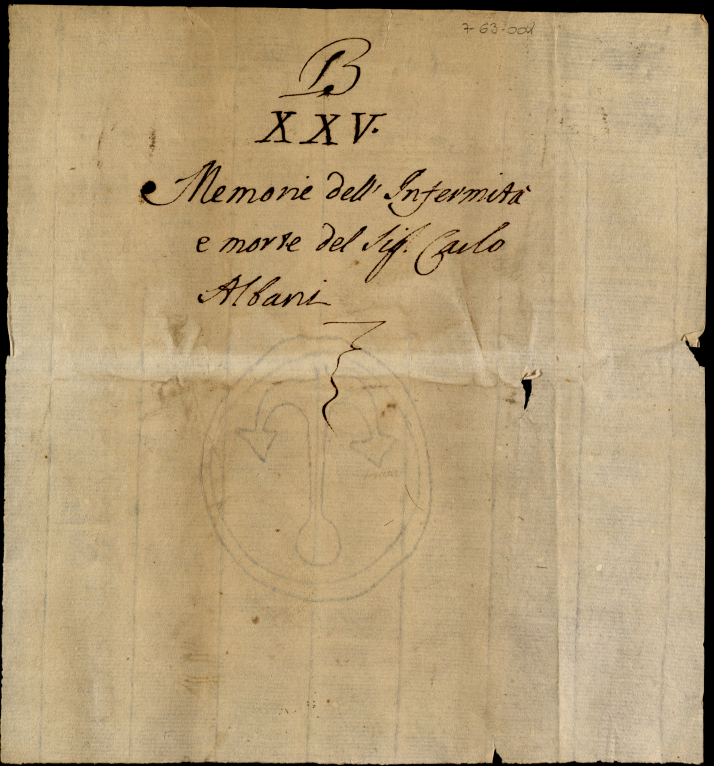 7-63-002
B
XXV.
Memorie dell' Infermità
e morte del Sig. Carlo
Albani